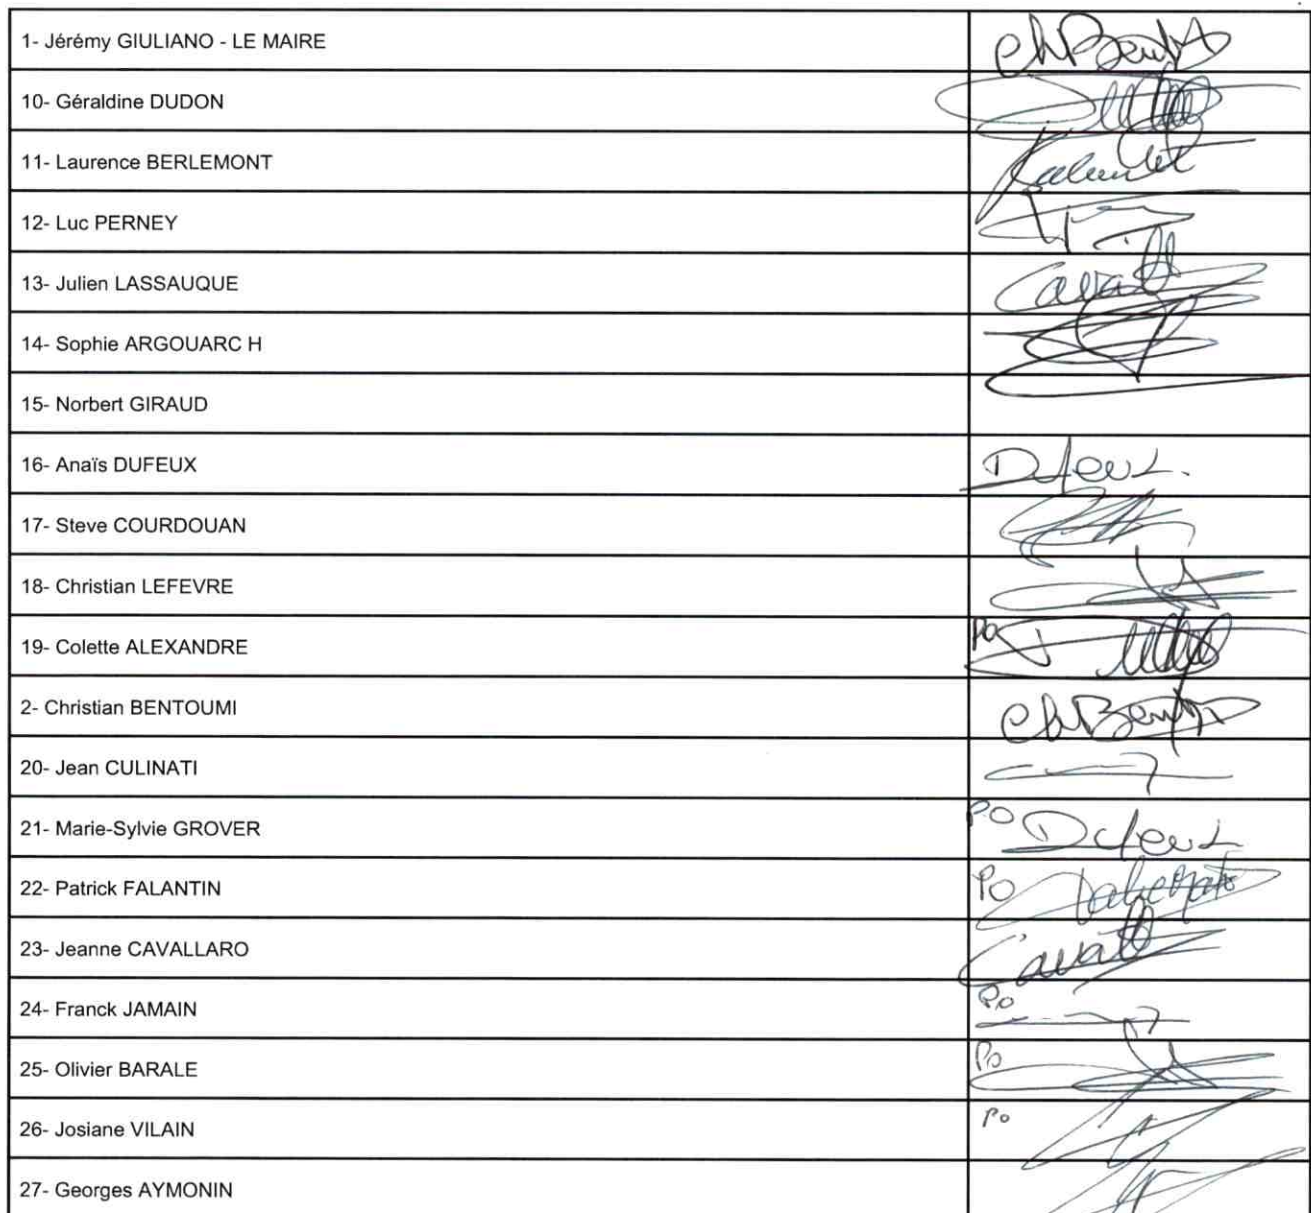 1- Jérémy GIULIANO - LE MAIRE ChBent
10- Géraldine DUDON
11- Laurence BERLEMONT
12- Luc PERNEY
13- Julien LASSAUQUE Cavall
14- Sophie ARGOUARC H
15- Norbert GIRAUD
16- Anaïs DUFEUX
17- Steve COURDOUAN
18- Christian LEFEVRE
19- Colette ALEXANDRE PO
2- Christian BENTOUMI ChBent
20- Jean CULINATI
21- Marie-Sylvie GROVER PO
22- Patrick FALANTIN PO
23- Jeanne CAVALLARO Cavall
24- Franck JAMAIN Po
25- Olivier BARALE Po
26- Josiane VILAIN Po
27- Georges AYMONIN